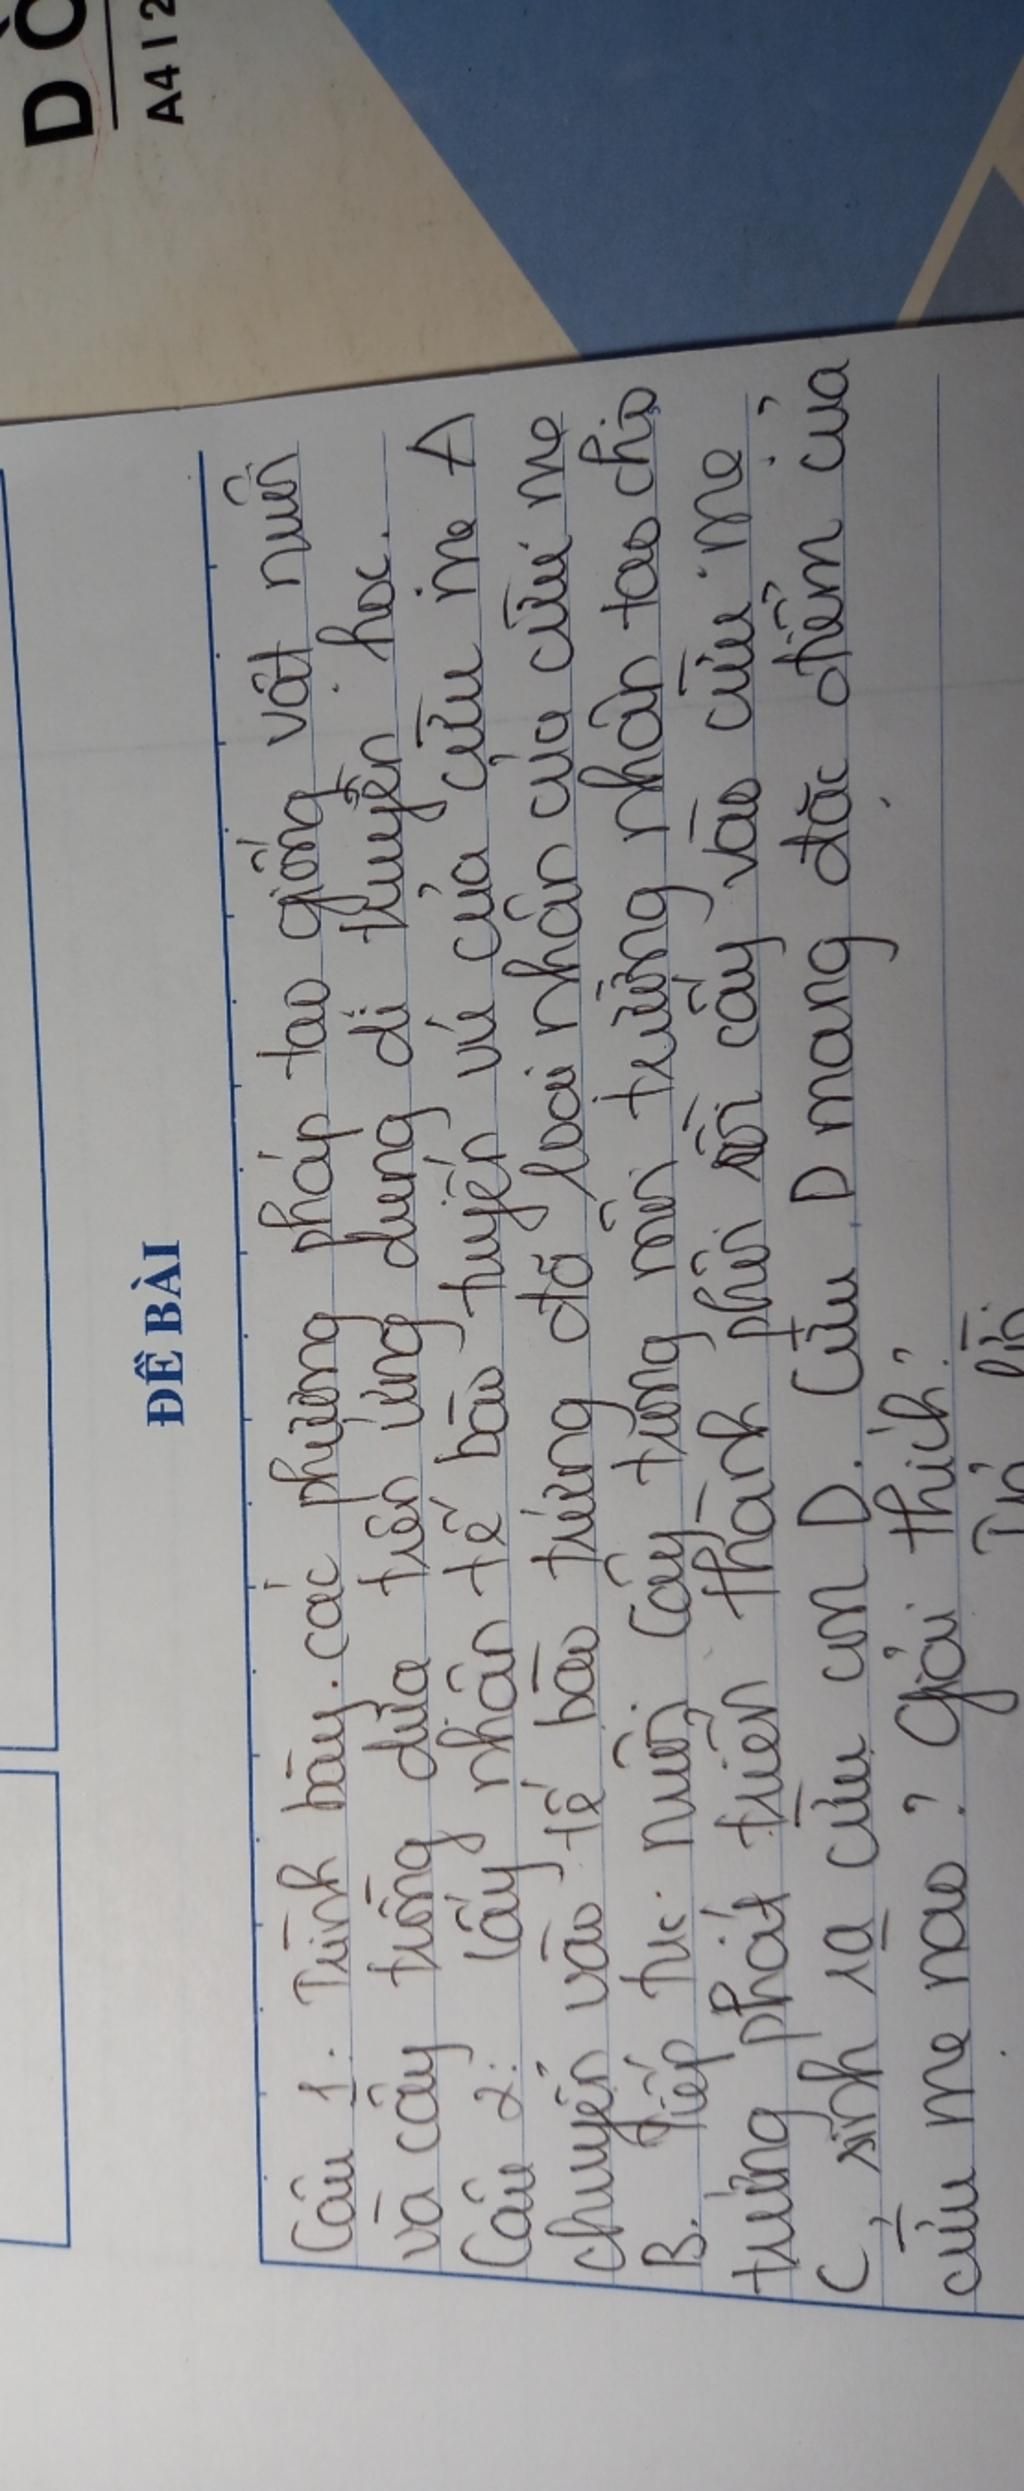 A4 12
ĐỀ BÀI
Câu 1: Trình bày các phương pháp tạo giống vật nuôi
và cây trồng dựa trên ứng dụng di truyền học.
Câu 2: lấy nhân tế bào tuyến vú của cừu mẹ A
chuyển vào tế bào trứng đã loại nhân của cừu mẹ
B. Tiếp tục nuôi cấy trong môi trường nhân tạo cho
trứng phát triển thành phôi rồi cấy vào cừu mẹ
C, sinh ra cừu con D. Cừu D mang đặc điểm của
cừu mẹ nào? Giải thích?